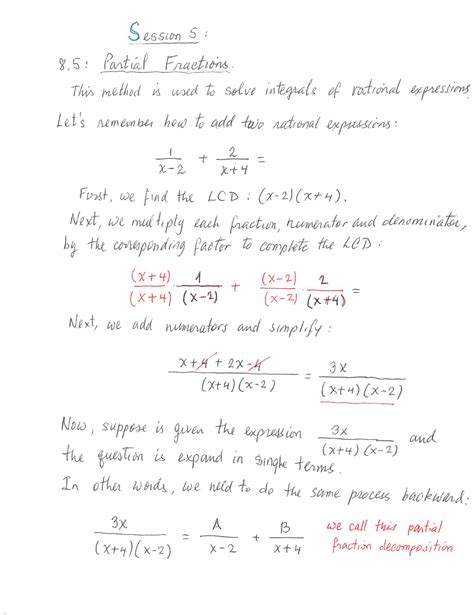 Session 5:
8.5: Partial Fractions.
This method is used to solve integrals of rational expressions
Let's remember how to add two rational expressions:
1/(x-2) + 2/(x+4) =
First, we find the LCD: (x-2)(x+4).
Next, we multiply each fraction, numerator and denominator,
by the corresponding factor to complete the LCD:
(x+4)/(x+4) · 1/(x-2) + (x-2)/(x-2) · 2/(x+4) =
Next, we add numerators and simplify:
(x+4+2x-4)/((x+4)(x-2)) = 3x/((x+4)(x-2))
Now, suppose is given the expression 3x/((x+4)(x-2)) and
the question is expand in single terms.
In other words, we need to do the same process backward:
3x/((x+4)(x-2)) = A/(x-2) + B/(x+4) we call this partial
fraction decomposition